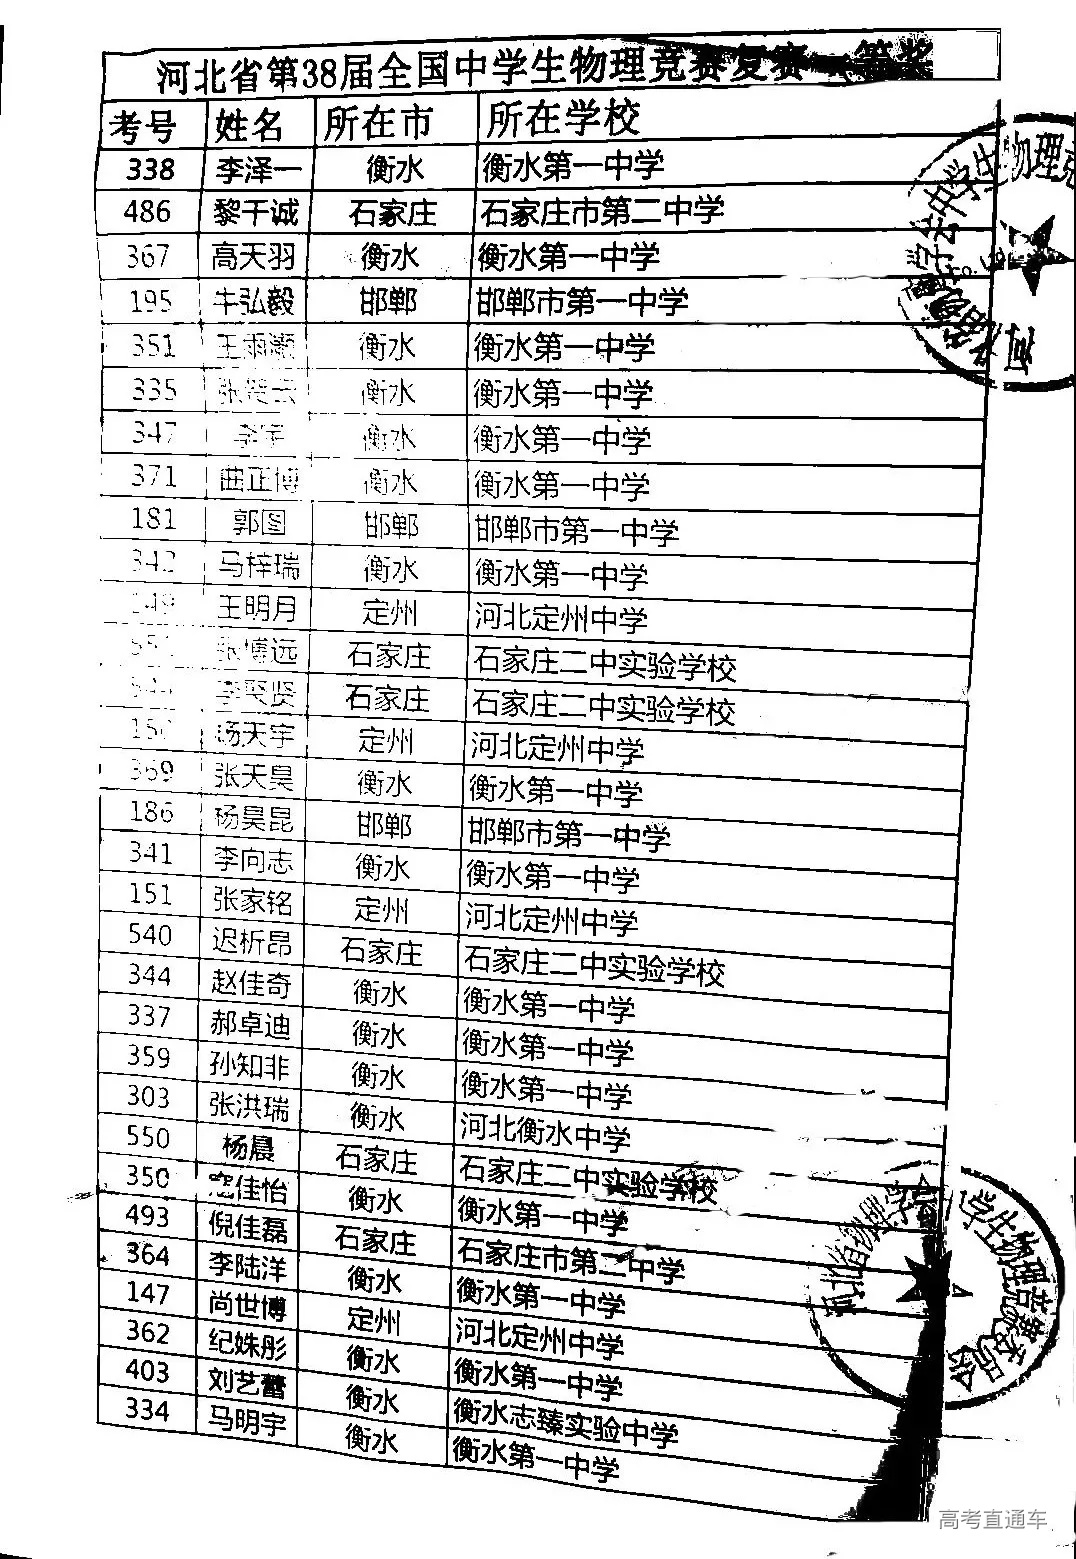 河北省第38届全国中学生物理竞赛复赛 等奖
考号 姓名 所在市 所在学校
338 李泽一 衡水 衡水第一中学
486 黎干诚 石家庄 石家庄市第二中学
367 高天羽 衡水 衡水第一中学
195 牛弘毅 邯郸 邯郸市第一中学
351 王雨灏 衡水 衡水第一中学
335 衡水 衡水第一中学
347 衡水 衡水第一中学
371 曲正博 衡水 衡水第一中学
181 郭图 邯郸 邯郸市第一中学
342 马梓瑞 衡水 衡水第一中学
王明月 定州 河北定州中学
张博远 石家庄 石家庄二中实验学校
石家庄 石家庄二中实验学校
杨天宇 定州 河北定州中学
369 张天昊 衡水 衡水第一中学
186 杨昊昆 邯郸 邯郸市第一中学
341 李向志 衡水 衡水第一中学
151 张家铭 定州 河北定州中学
540 迟析昂 石家庄 石家庄二中实验学校
344 赵佳奇 衡水 衡水第一中学
337 郝卓迪 衡水 衡水第一中学
359 孙知非 衡水 衡水第一中学
303 张洪瑞 衡水 河北衡水中学
550 杨晨 石家庄 石家庄二中实验学校
350 寇佳怡 衡水 衡水第一中学
493 倪佳磊 石家庄 石家庄市第二中学
364 李陆洋 衡水 衡水第一中学
147 尚世博 定州 河北定州中学
362 纪姝彤 衡水 衡水第一中学
403 刘艺蕾 衡水 衡水志臻实验中学
334 马明宇 衡水 衡水第一中学
高考直通车